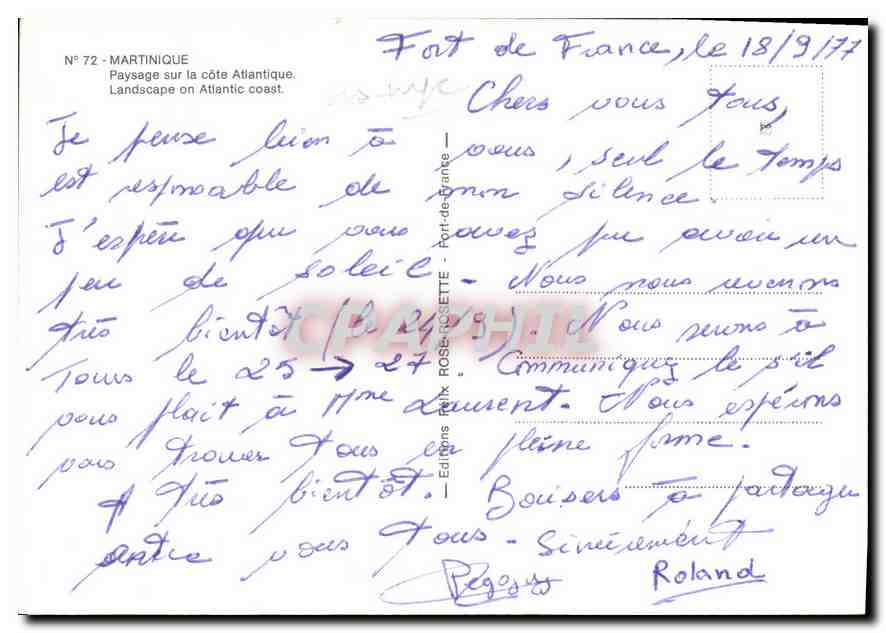 N° 72 - MARTINIQUE
Paysage sur la côte Atlantique.
Landscape on Atlantic coast.
Fort de France, le 18/9/77
Chers vous tous,
Je pense bien à vous, seul le temps
est responsable de mon silence.
J'espère que vous avez pu avoir un
peu de soleil - Nous nous revenons
très bientôt (le 24/9). Nous serons à
Tours le 25 → 27. Communiquez le s'il
vous plait à Mme Laurent. Nous espérons
vous trouver tous en pleine forme.
A très bientôt. Baisers à partager
entre vous tous - Sincèrement
Peggy Roland
— Editions Félix ROSE-ROSETTE - Fort-de-France —
CPAPHIL